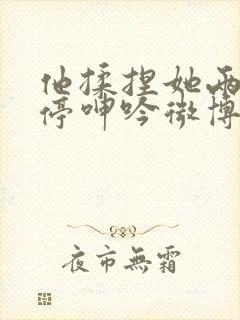 他揉捏她两
停呻吟微博
夜市無霜